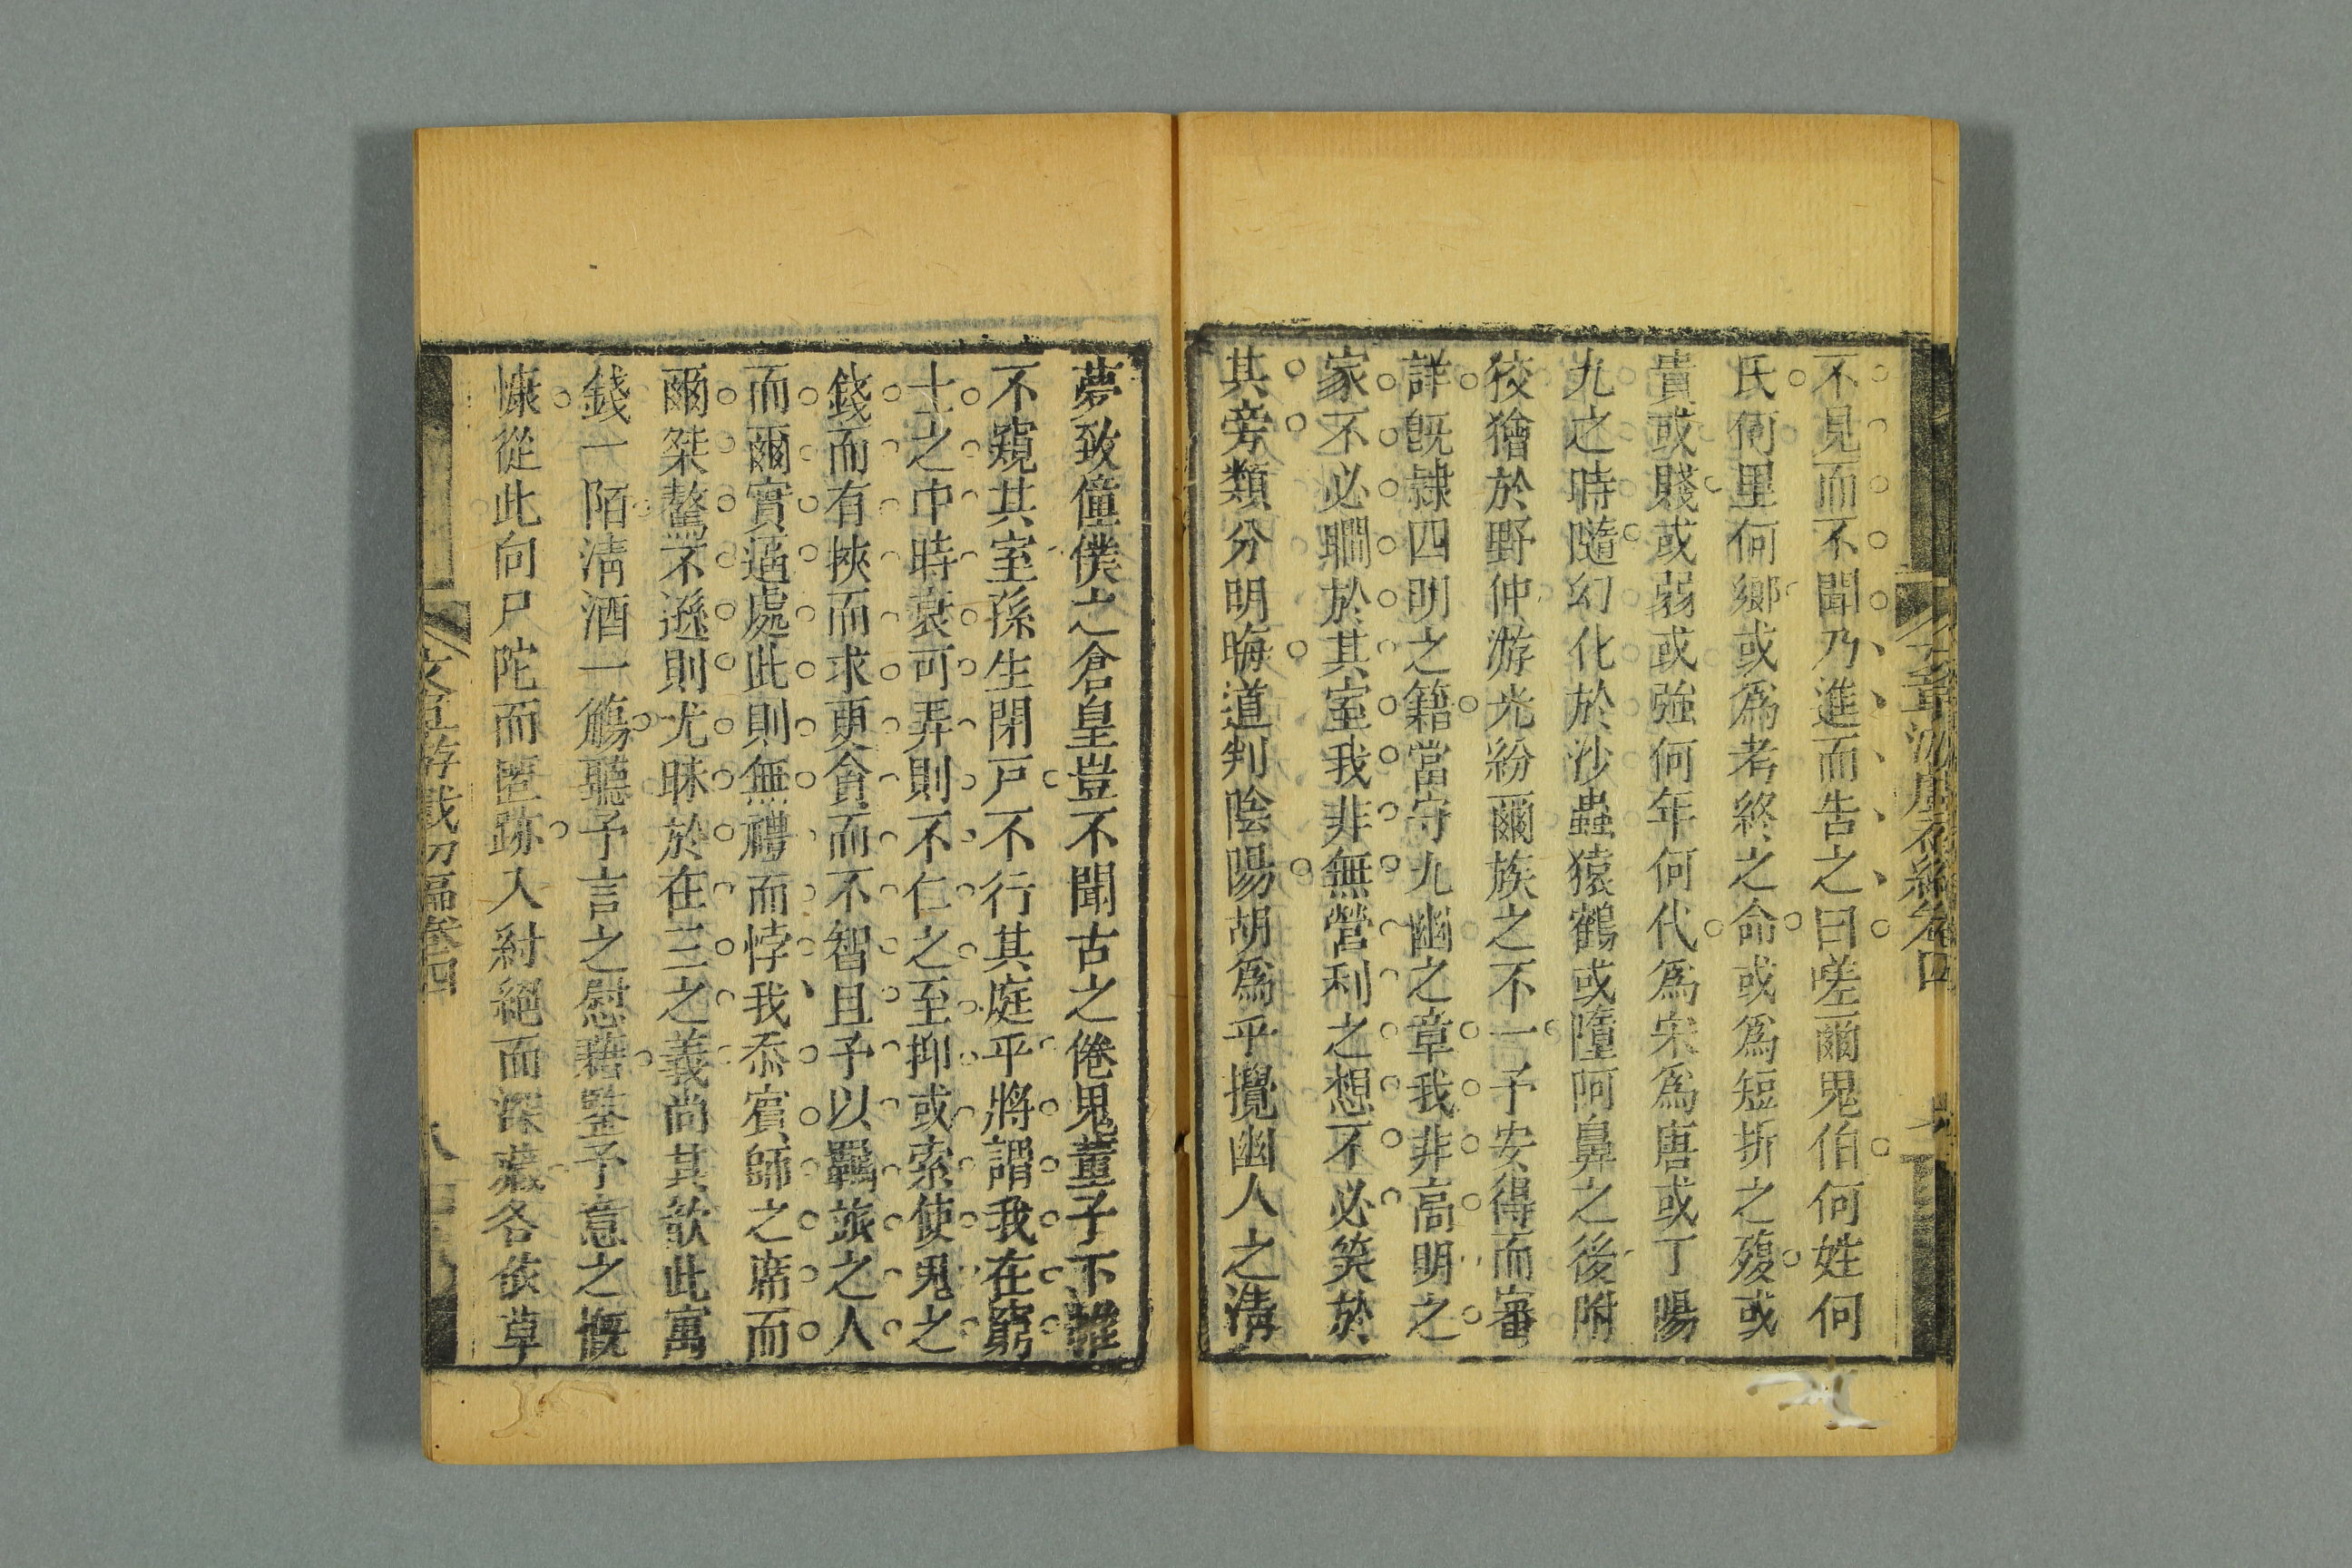 不見而不聞乃進而告之曰嗟爾鬼伯何姓何
氏何里何鄉或爲考終之命或爲短折之殤或
貴或賤或弱或強何年何代爲宋爲唐或丁陽
九之時隨幻化於沙蟲猿鶴或墮阿鼻之後附
狡獪於野仲游光紛爾族之不一予安得而審
詳既隸四明之籍當守九幽之章我非高明之
家不必瞷於其室我非無營利之想不必笑於
其旁類分明晦道判陰陽胡爲乎攪幽人之清
夢致僮僕之倉皇豈不聞古之倦鬼董子下帷
不窺其室孫生閉戸不行其庭乎將謂我在窮
士之中時衰可弄則不仁之至抑或索使鬼之
錢而有挾而求更貪而不智且予以羈旅之人
而爾實逼處此則無禮而悖我忝賓師之席而
爾桀驁不遜則尤昧於在三之義尚其歆此寓
錢一陌清酒一觴聽予言之慰藉鑒予意之慨
慷從此向尸陀而匿跡入紂絕而深藏各依草
卷四
文 游戲初編卷四
八